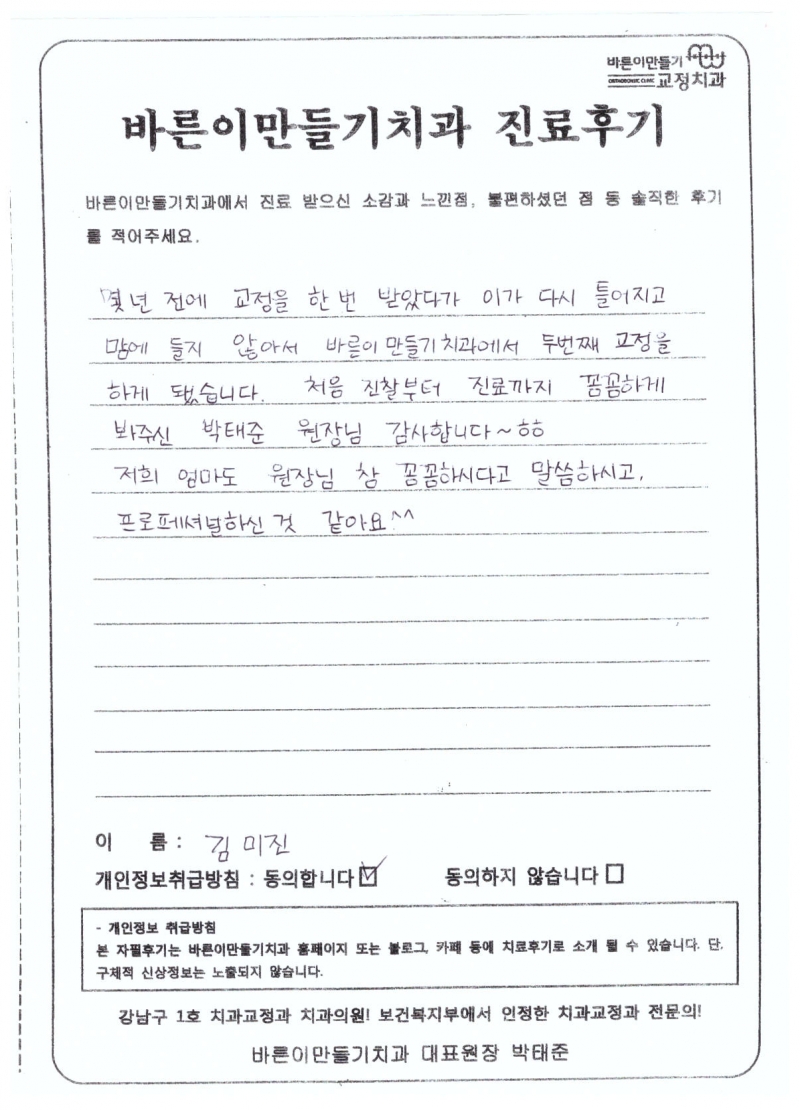 바른이만들기
ORTHODONTIC CLINIC 교정치과
바른이만들기치과 진료후기
바른이만들기치과에서 진료 받으신 소감과 느낀점, 불편하셨던 점 등 솔직한 후기
를 적어주세요.
몇년 전에 교정을 한번 받았다가 이가 다시 틀어지고
맘에 들지 않아서 바른이만들기치과에서 두번째 교정을
하게 됐습니다. 처음 진찰부터 진료까지 꼼꼼하게
봐주신 박태준 원장님 감사합니다~ㅎㅎ
저희 엄마도 원장님 참 꼼꼼하시다고 말씀하시고,
프로페셔널하신 것 같아요^^
이 름 : 김미진
개인정보취급방침 : 동의합니다 ☑ 동의하지 않습니다 □
- 개인정보 취급방침
본 자필후기는 바른이만들기치과 홈페이지 또는 블로그, 카페 등에 치료후기로 소개 될 수 있습니다. 단,
구체적 신상정보는 노출되지 않습니다.
강남구 1호 치과교정과 치과의원! 보건복지부에서 인정한 치과교정과 전문의!
바른이만들기치과 대표원장 박태준